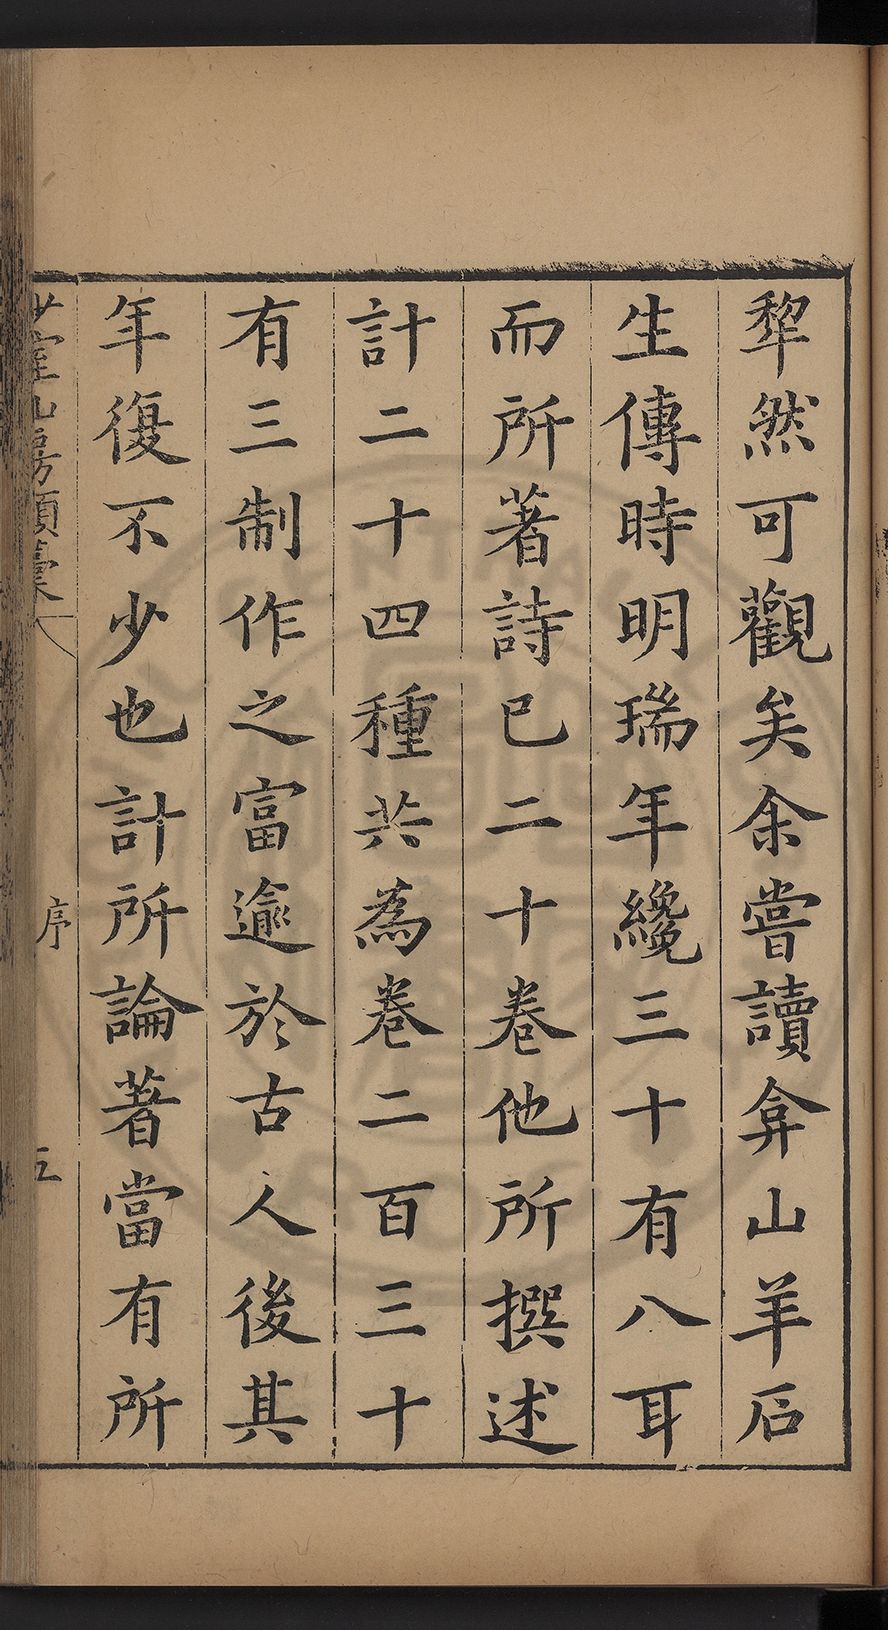 犂然可觀矣余嘗讀弇山羊石
生傳時明瑞年纔三十有八耳
而所著詩已二十卷他所撰述
計二十四種共為卷二百三十
有三制作之富逾於古人後其
年復不少也計所論著當有所
少室山房類藁
序
五